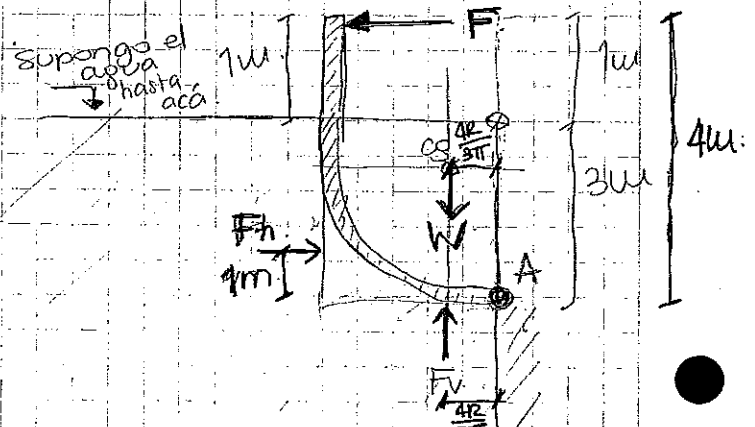 supongo el
agua
hasta
acá
1m.
F
1m
4m.
3m
cg
4R
3π
W
Fh.
1m
A
Fv
4R